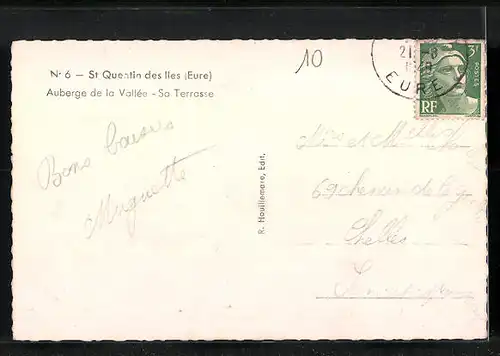 N° 6 — St Quentin des Iles (Eure)
Auberge de la Vallée - Sa Terrasse
10
21 -8
EURE
RF
Bons baisers
Muguette
R. Houillemare, Edit.
et
69 chemin de
Chelles